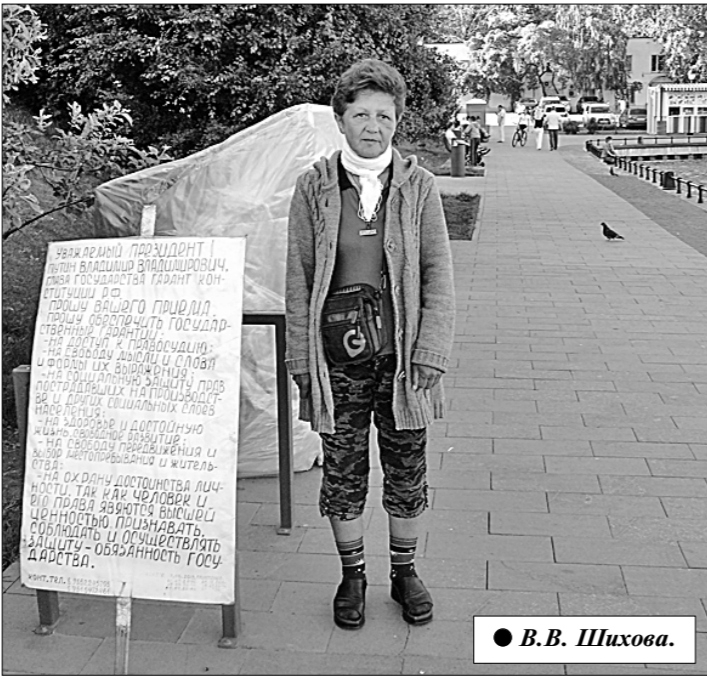 УВАЖАЕМЫЙ ПРЕЗИДЕНТ!
ПУТИН ВЛАДИМИР ВЛАДИМИРОВИЧ,
ГЛАВА ГОСУДАРСТВА ГАРАНТ КОН-
СТИТУЦИИ РФ.
ПРОШУ ВАШЕГО ПРИЕМА
ПРОШУ ОБЕСПЕЧИТЬ ГОСУДАР-
СТВЕННЫЕ ГАРАНТИИ:
-НА ДОСТУП К ПРАВОСУДИЮ;
-НА СВОБОДУ МЫСЛИ И СЛОВА
И ФОРМЫ ИХ ВЫРАЖЕНИЯ;
-НА СОЦИАЛЬНУЮ ЗАЩИТУ ПРАВ
ПОСТРАДАВШИХ НА ПРОИЗВОДСТ-
ВЕ И ДРУГИХ СОЦИАЛЬНЫХ СЛОЕВ
НАСЕЛЕНИЯ;
-НА ЗДОРОВЬЕ И ДОСТОЙНУЮ
ЖИЗНЬ, СВОБОДНОЕ РАЗВИТИЕ;
-НА СВОБОДУ ПЕРЕДВИЖЕНИЯ И
ВЫБОР МЕСТОПРЕБЫВАНИЯ И ЖИТЕЛЬ-
СТВА;
-НА ОХРАНУ ДОСТОИНСТВА ЛИЧ-
НОСТИ, ТАК КАК ЧЕЛОВЕК И
ЕГО ПРАВА ЯВЯЮТСЯ ВЫСШЕЙ
ЦЕННОСТЬЮ ПРИЗНАВАТЬ,
СОБЛЮДАТЬ И ОСУЩЕСТВЛЯТЬ
ЗАЩИТУ-ОБЯЗАННОСТЬ ГОСУ-
ДАРСТВА.
КОНТ.ТЕЛ.
G
● В.В. Шихова.